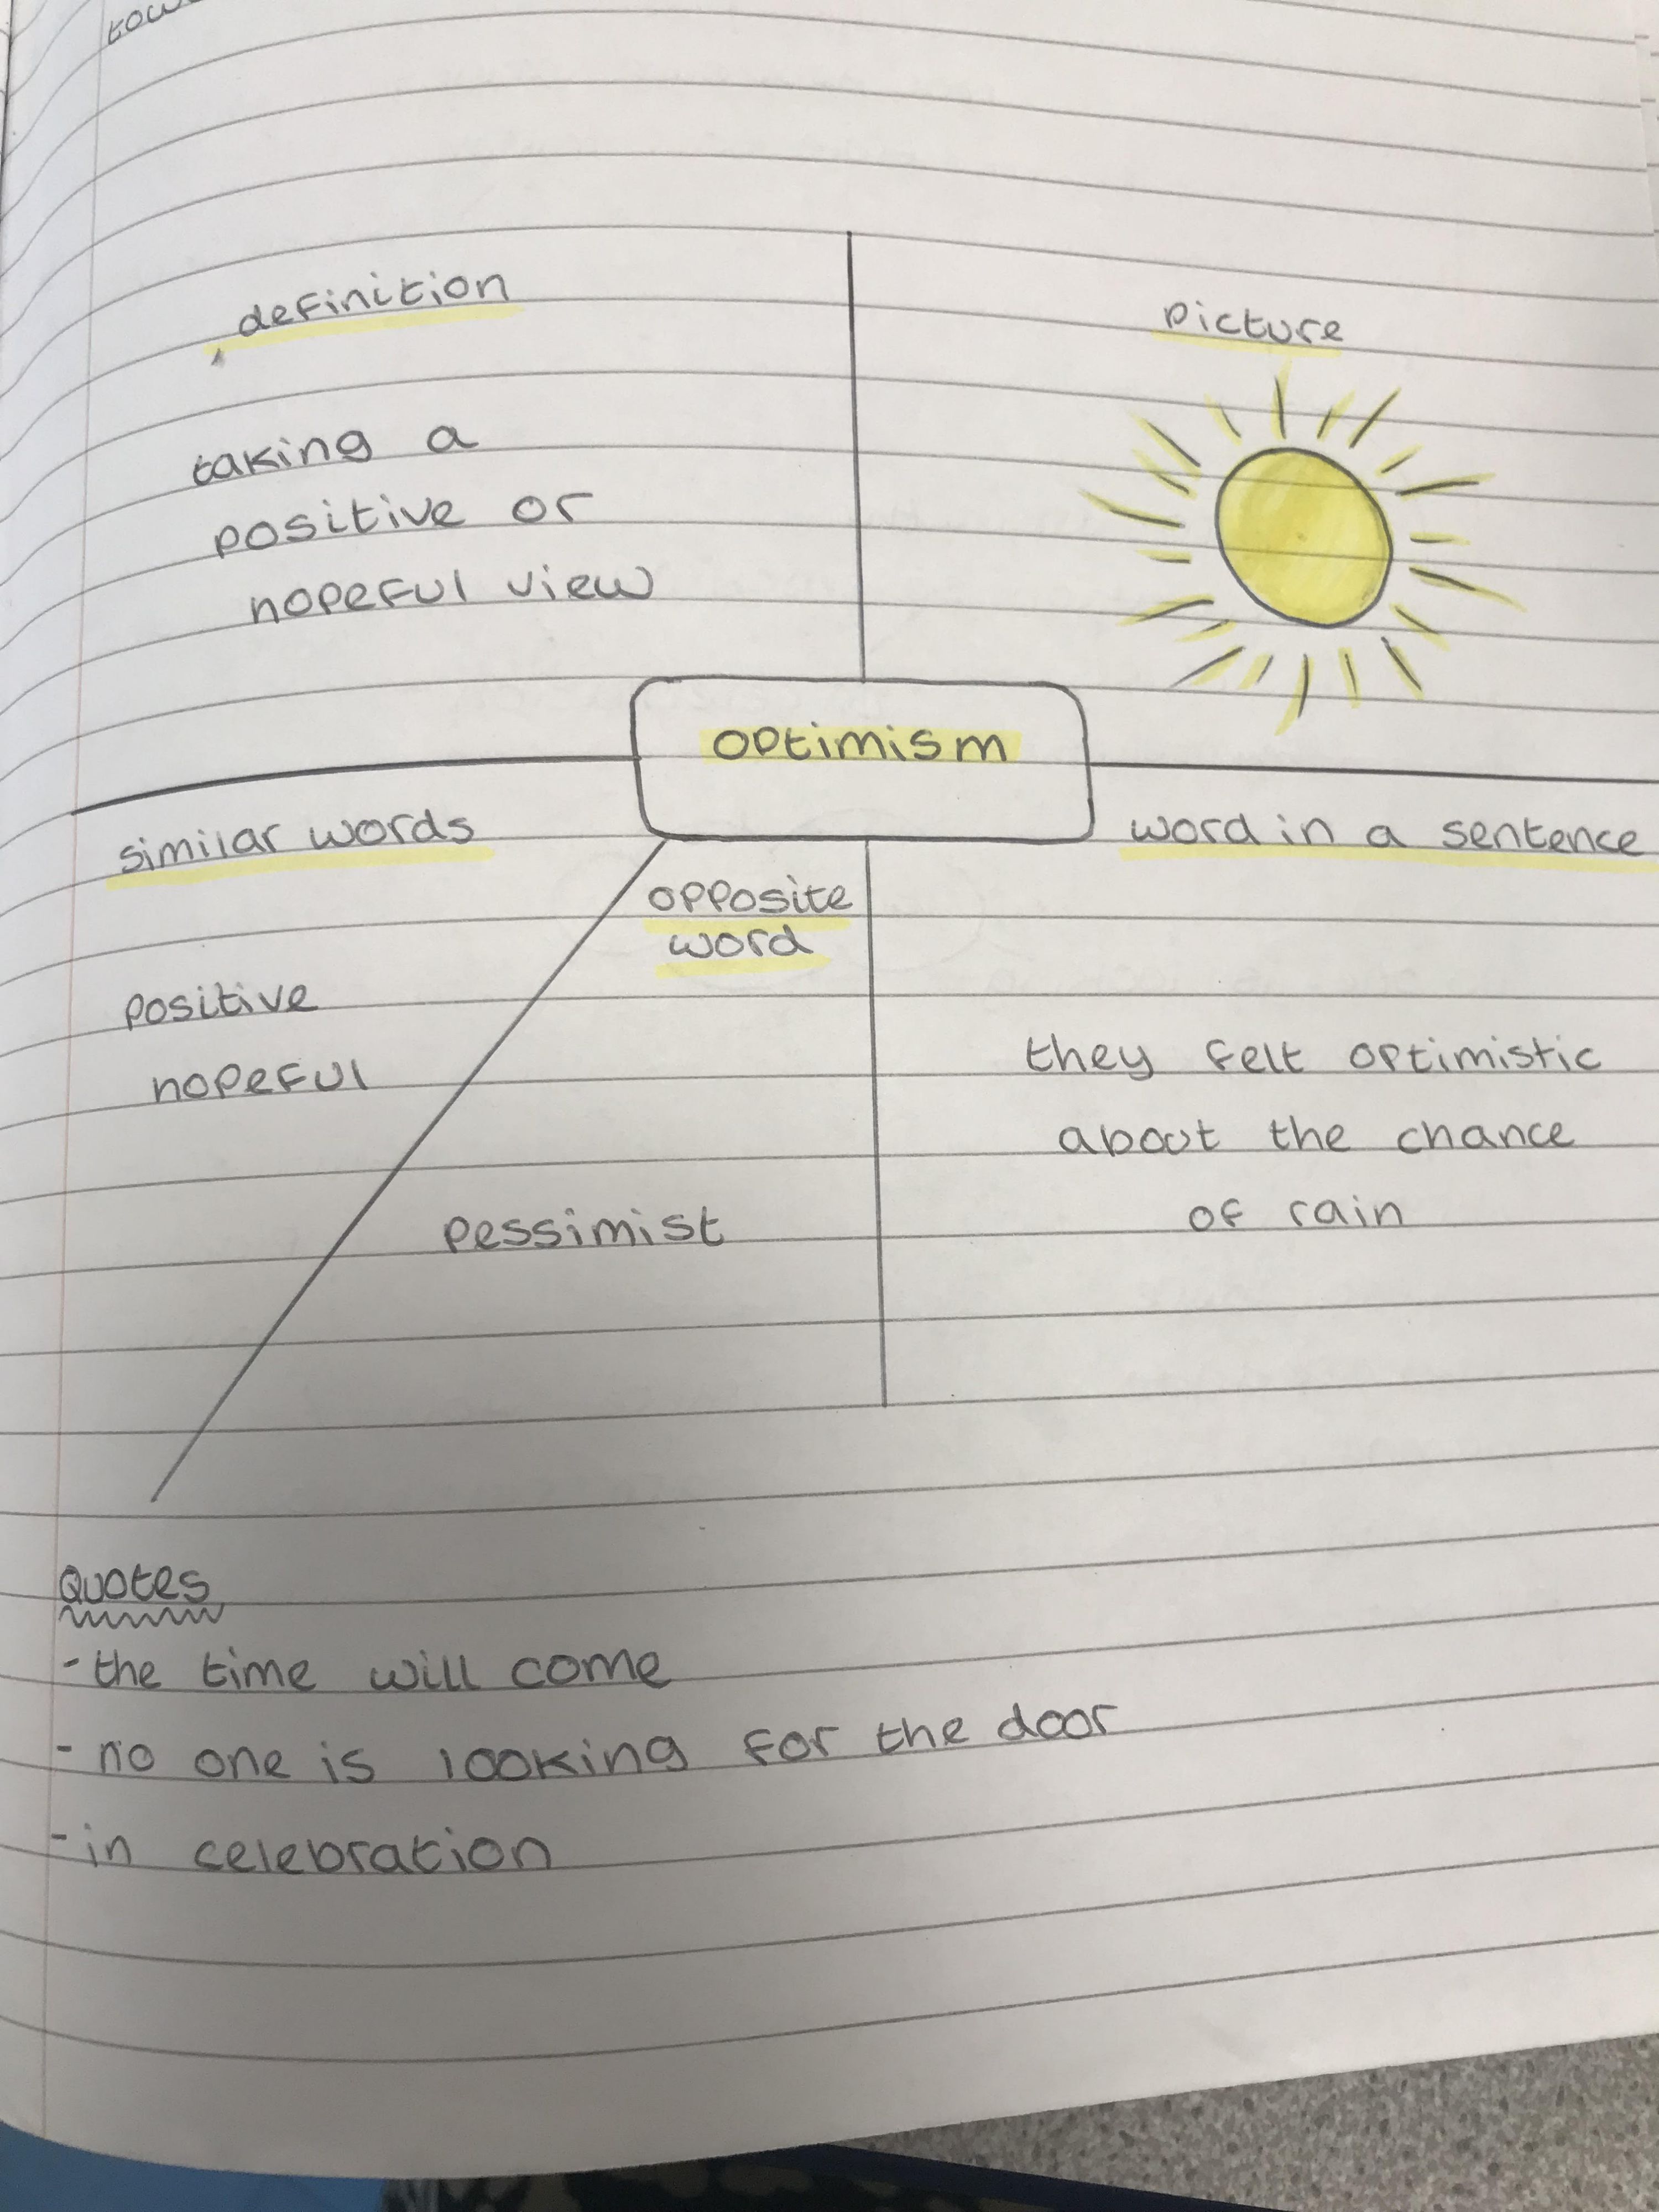 definition
taking a
positive or
hopeful view
picture
optimism
similar words
positive
hopeful
opposite
word
pessimist
word in a sentence
they felt optimistic
about the chance
of rain
Quotes
- the time will come
- no one is looking for the door
- in celebration